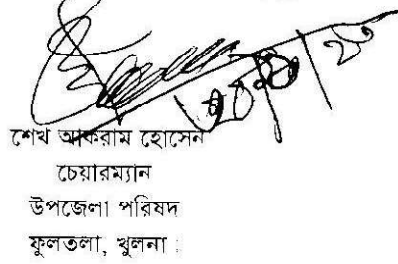 শেখ আকরাম হোসেন
চেয়ারম্যান
উপজেলা পরিষদ
ফুলতলা, খুলনা।